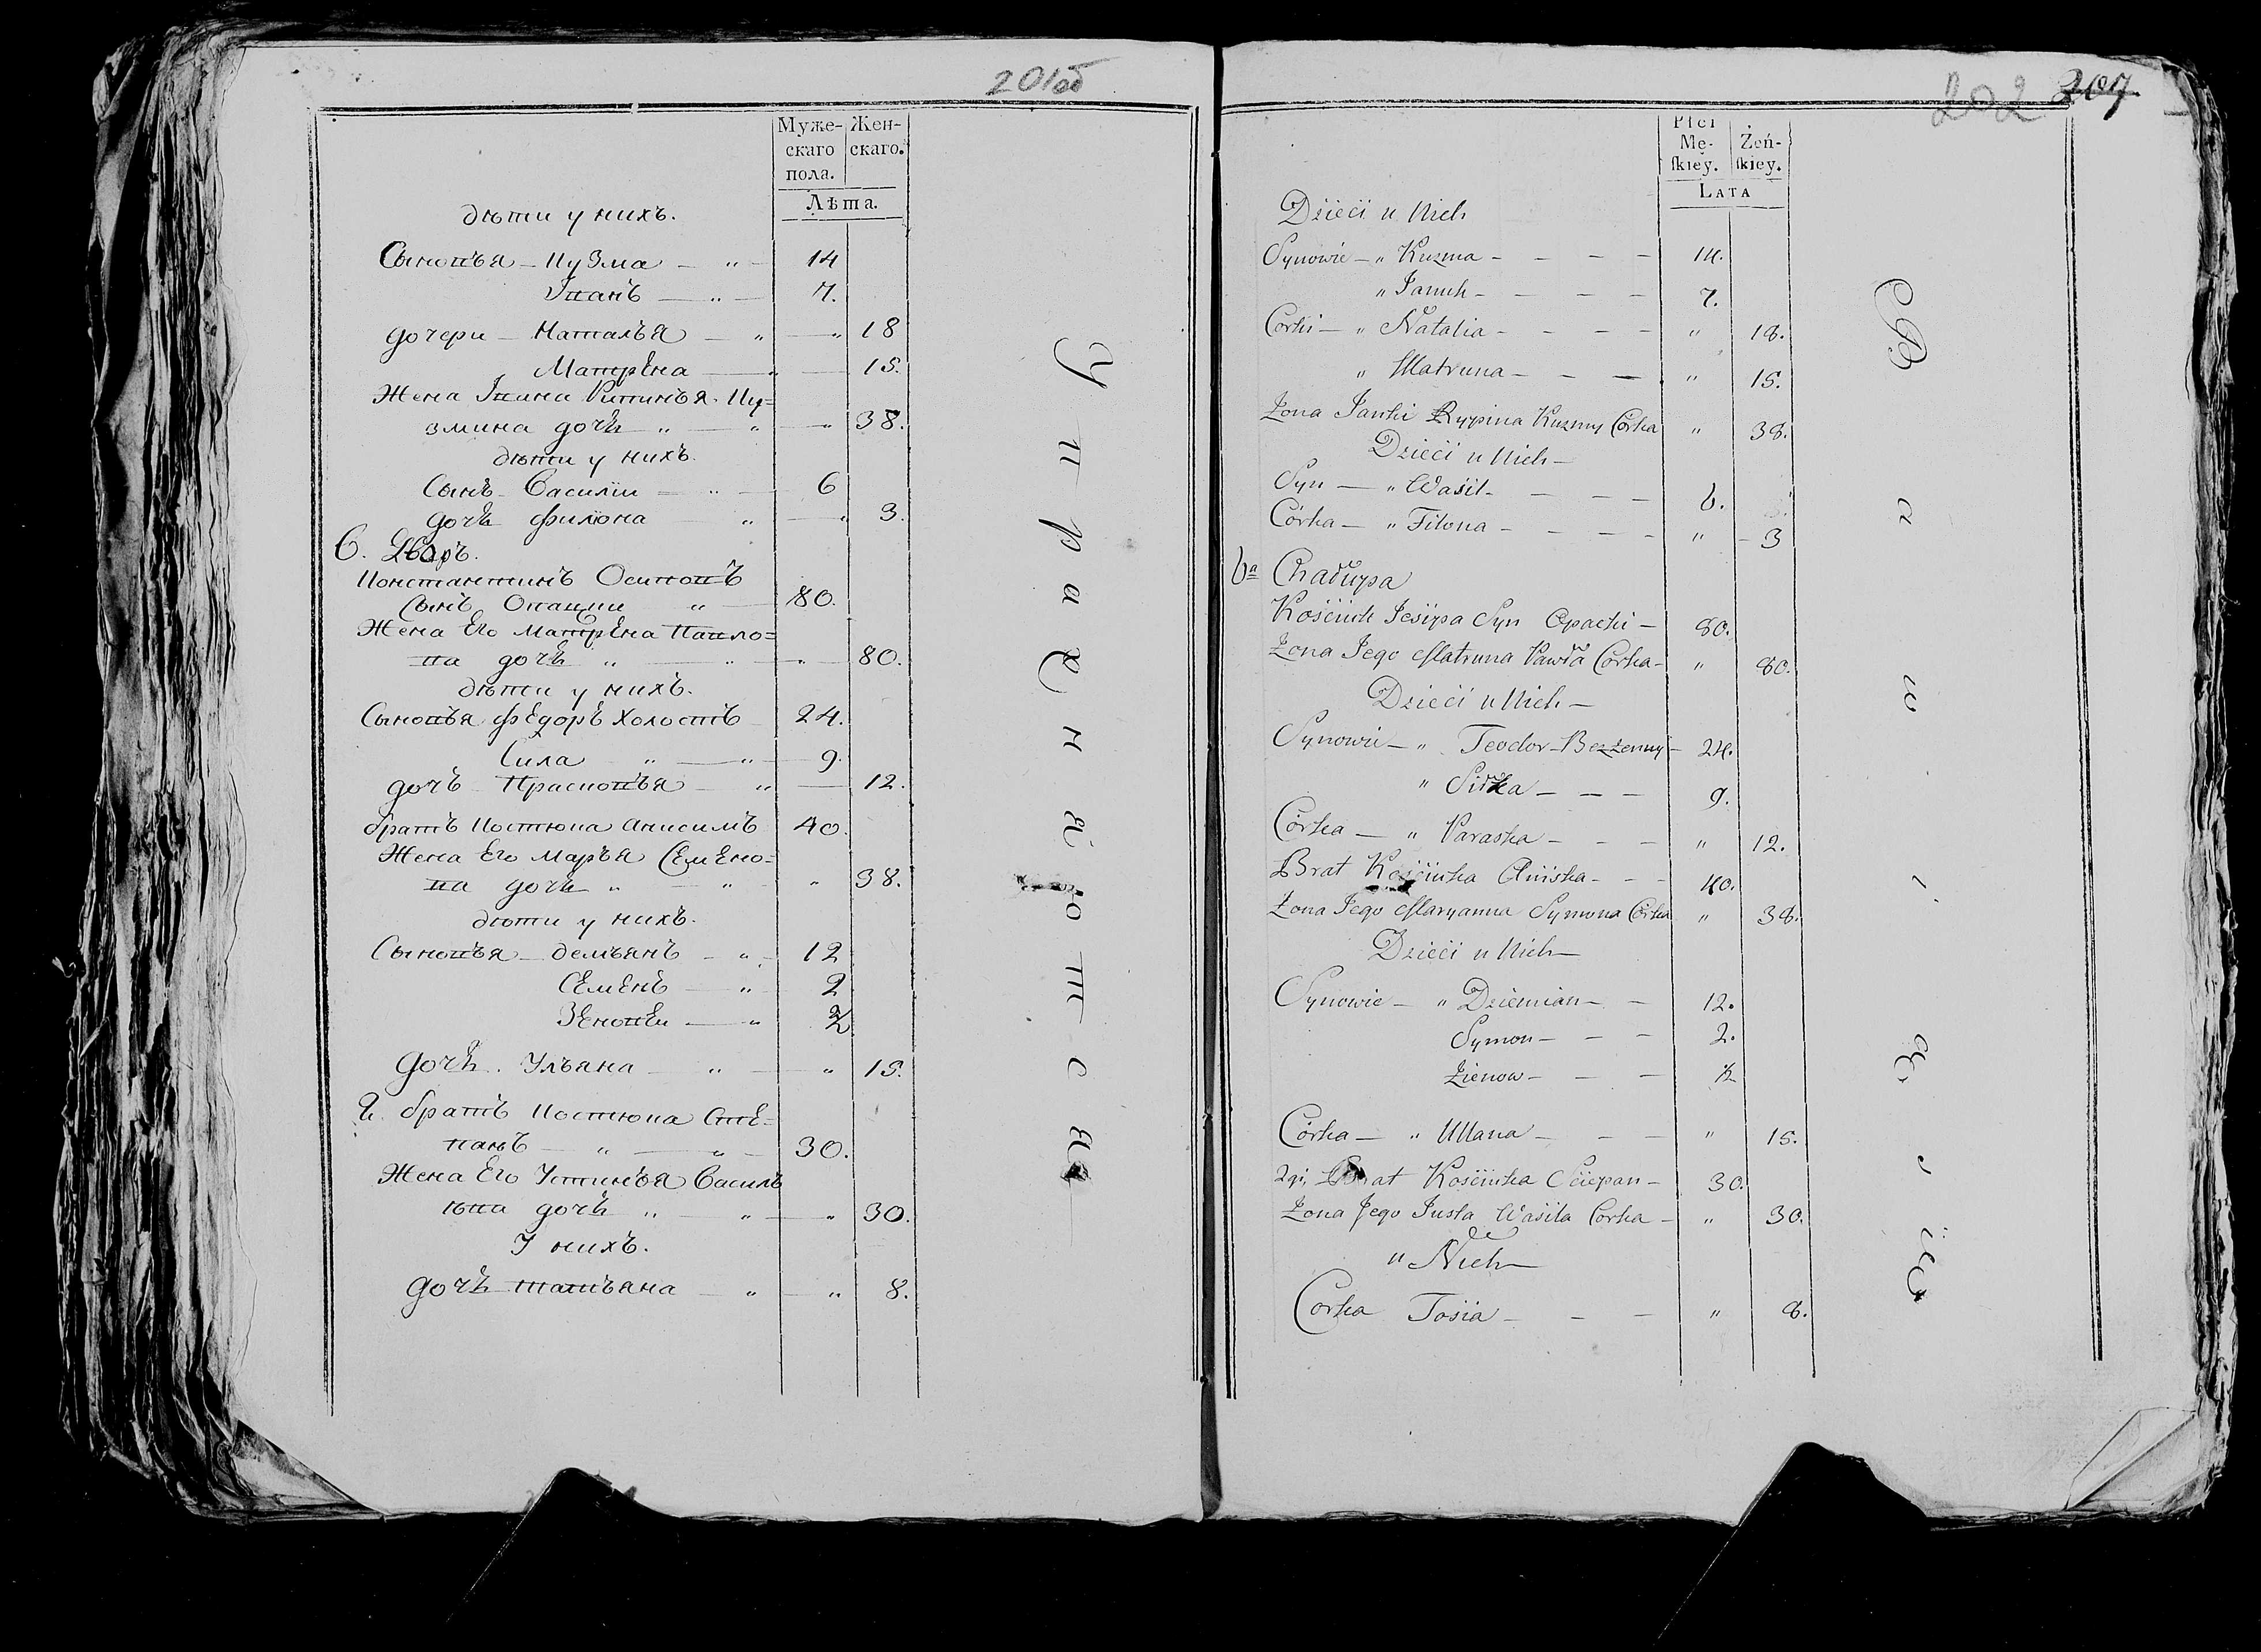 201об
Муже- Жен-
скаго скаго.
пола.
Лѣта.
дѣти у нихъ.
Сыновья – Кузма – „ – 14
Иванъ – „ – 7.
дочери – Наталья – „ – „ 18
Матрена – 15.
Жена Ивана Рипинья Ку=
змина дочь „ – „ – „ 38.
дѣти у нихъ.
Сынъ – Василiи – „ – 6
дочь Филiона „ – „ 3.
6. Дворъ.
Константинъ Осиповъ
Сынъ Опацки „ – 80.
Жена Его Матрена Павло=
ва дочь „ – „ – „ – 80.
дѣти у нихъ.
Сыновья Федоръ холостъ 24.
Сила „ – „ – 9.
дочь – Прасковья – „ – 12.
братъ Костюка Анисимъ 40.
Жена Его Марья Семено=
ва дочь „ – „ – „ 38.
дѣти у нихъ.
Сыновья – демьянъ – „ – 12
Семенъ – „ 2
Зеновеи – „ ½
дочь. Ульяна – „ – „ 15.
2. братъ Костюка Сте=
панъ – „ – „ – 30.
Жена Его Устинья Василь
ева дочь „ – „ – „ 30.
У нихъ.
дочь Татьяна – „ – „ 8.
Управляютса
202 207
Płci
Mę- Żeń-
ſkiey. ſkiey.
LATA
Dzieci u Nich
Synowie – „ Kuzma – – – – 14.
„ Januk – – – – 7.
Corki – „ Natalia – – – – „ 18.
„ Matruna – – – „ 15.
Żona Janki Rypina Kuzmy Córka „ 38.
Dzieci u Nich –
Syn – „ Waśil – – – – 6.
Córka – „ Filona – – – – „ 3
6a Chałupa
Kościuk Jesipa Syn Opacki – 80.
Żona Jego Matruna Pawła Córka – „ 80.
Dzieci u Nich –
Synowie – „ Teodor – Bezżenny – 24.
„ Siłka – – – 9.
Córka – „ Paraska – – – „ 12.
Brat Kościuka Aniśka – – – 40.
Żona Jego Maryanna Symona Córka „ 38.
Dzieci u Nich –
Synowie – „ Dziemian – – 12.
Symon – – – 2.
Zienow – – – ½
Córka – „ Ullana – – – „ 15.
2gi, Brat Kościuka Sciepan – 30.
Żona Jego Justa Waśila Corka – „ 30.
u Nich –
Corka Tosia – – – „ 8.